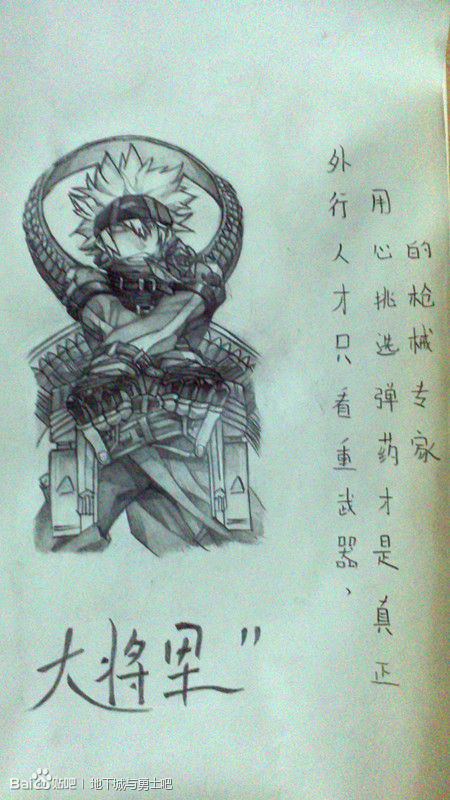 外行人才只看重武器、
用心挑选弹药才是真正
的枪械专家
大将
Bai贴吧 | 地下城与勇士吧